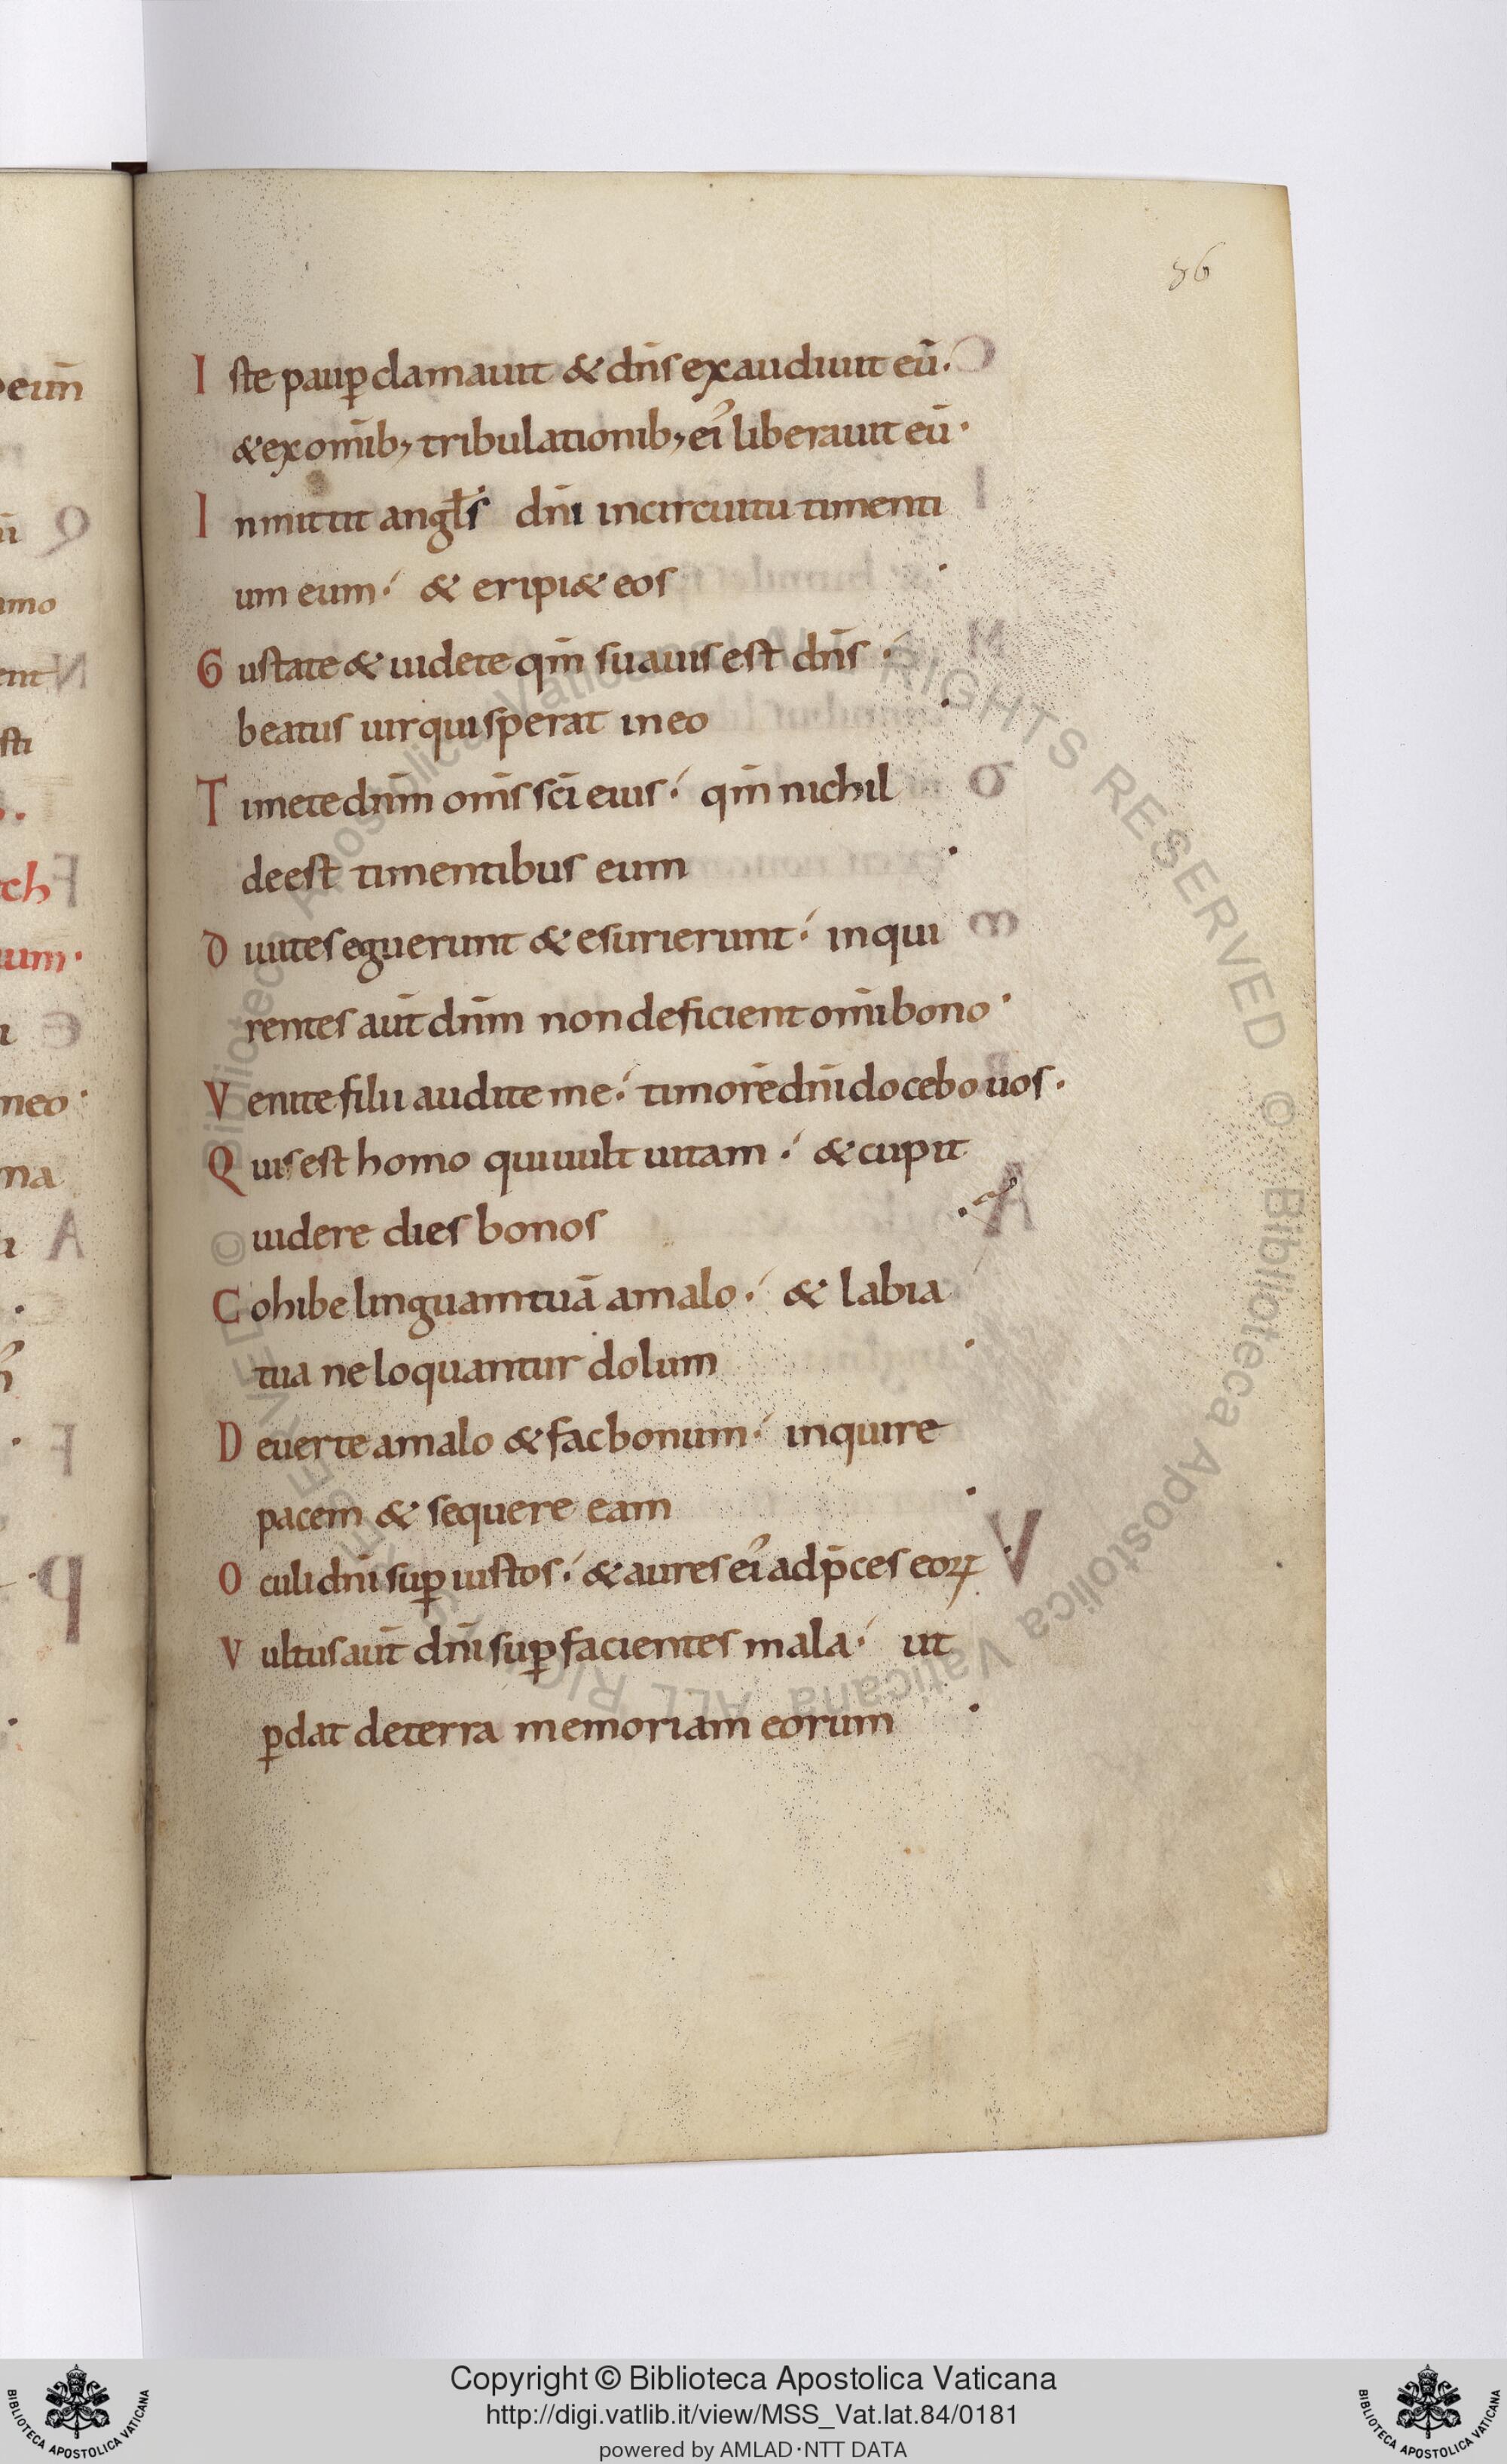 56
I ste paup̱ clamauit & dn̄s exaudiuit eū.
& ex om̄ib; tribulationib; ei᾽ liberauit eū.
I nmittit angl̄s dn̄i incircuitu timenti
um eum·́ & eripi& eos .
G ustate & uidete qm̄ suauis est dn̄s·́
beatus uir qui sperat in eo .
T imete dn̄m om̄s sc̄i eius·́ qm̄ nichil
deest timentibus eum .
D iuites eguerunt & esurierunt·́ inqui
rentes aut̄ dn̄m non deficient om̄i bono .
V enite filii audite me·́ timorē dn̄i docebo uos.
Q uis est homo qui uult uitam·́ & cupit
uidere dies bonos .
C ohibe linguam tuā a malo·́ & labia
tua ne loquantur dolum .
D euerte a malo & fac bonum·́ inquire
pacem & sequere eam .
O culi dn̄i sup̱ iustos·́ & aures ei᾽ ad p̄ces eoꝝ .
V ultus aut̄ dn̄i sup̱ facientes mala·́ ut
ꝑdat de terra memoriam eorum .
Copyright © Biblioteca Apostolica Vaticana
http://digi.vatlib.it/view/MSS_Vat.lat.84/0181
powered by AMLAD·NTT DATA
BIBLIOTECA APOSTOLICA VATICANA
BIBLIOTECA APOSTOLICA VATICANA
© Biblioteca Apostolica Vaticana ALL RIGHTS RESERVED © Biblioteca Apostolica Vaticana ALL RIGHTS RESERVED